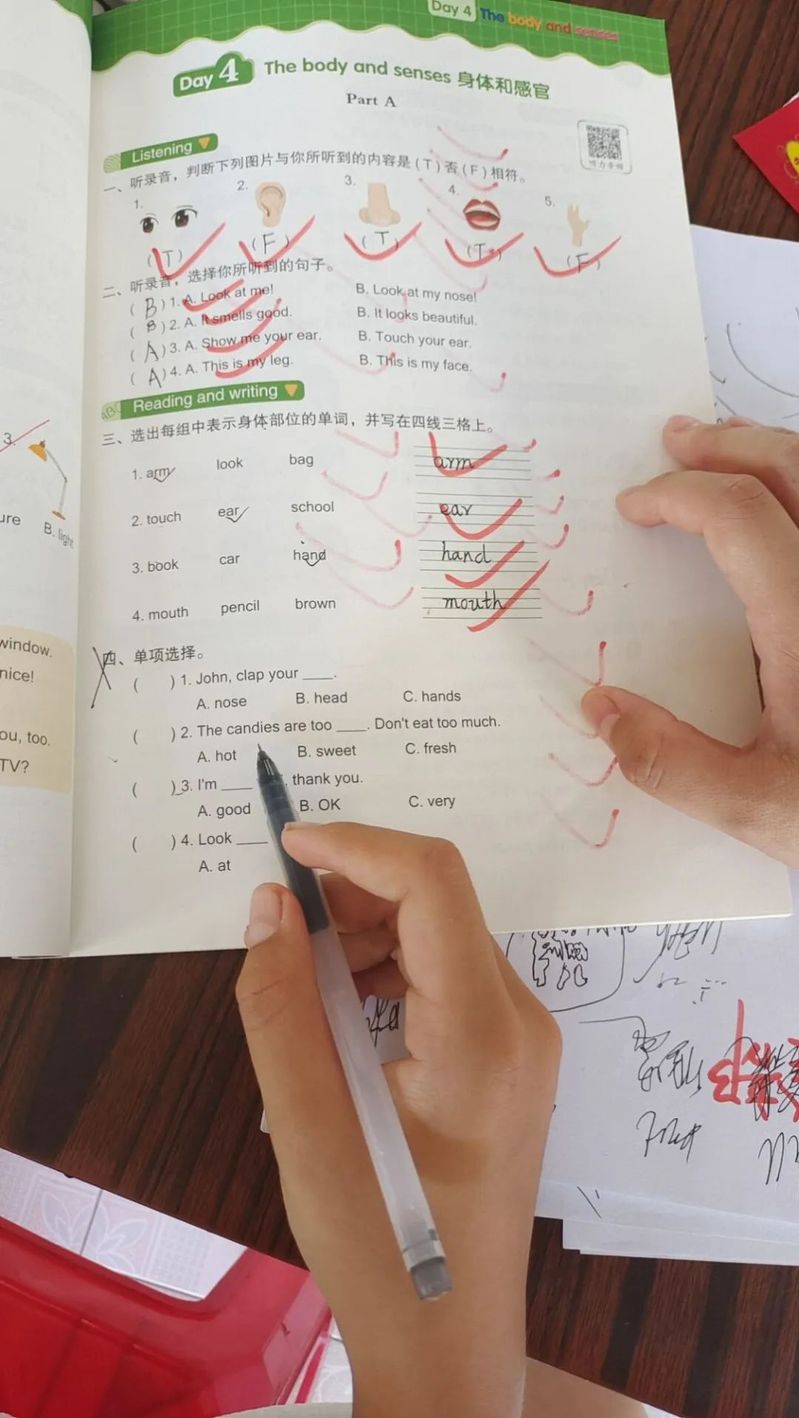 Day 4 The body and senses
Day 4 The body and senses 身体和感官
Part A
Listening
听力音频
一、听录音，判断下列图片与你所听到的内容是(T)否(F)相符。
1. 2. 3. 4. 5.
(T) (F) (T) (T) (F)
二、听录音，选择你所听到的句子。
(B) 1. A. Look at me! B. Look at my nose!
(B) 2. A. It smells good. B. It looks beautiful.
(A) 3. A. Show me your ear. B. Touch your ear.
(A) 4. A. This is my leg. B. This is my face.
ABC Reading and writing
三、选出每组中表示身体部位的单词，并写在四线三格上。
1. arm look bag arm
2. touch ear school ear
3. book car hand hand
4. mouth pencil brown mouth
四、单项选择。
( ) 1. John, clap your ____.
A. nose B. head C. hands
( ) 2. The candies are too ____. Don't eat too much.
A. hot B. sweet C. fresh
( ) 3. I'm ____, thank you.
A. good B. OK C. very
( ) 4. Look ____
A. at
3.
ure B. light
window.
nice!
ou, too.
TV?